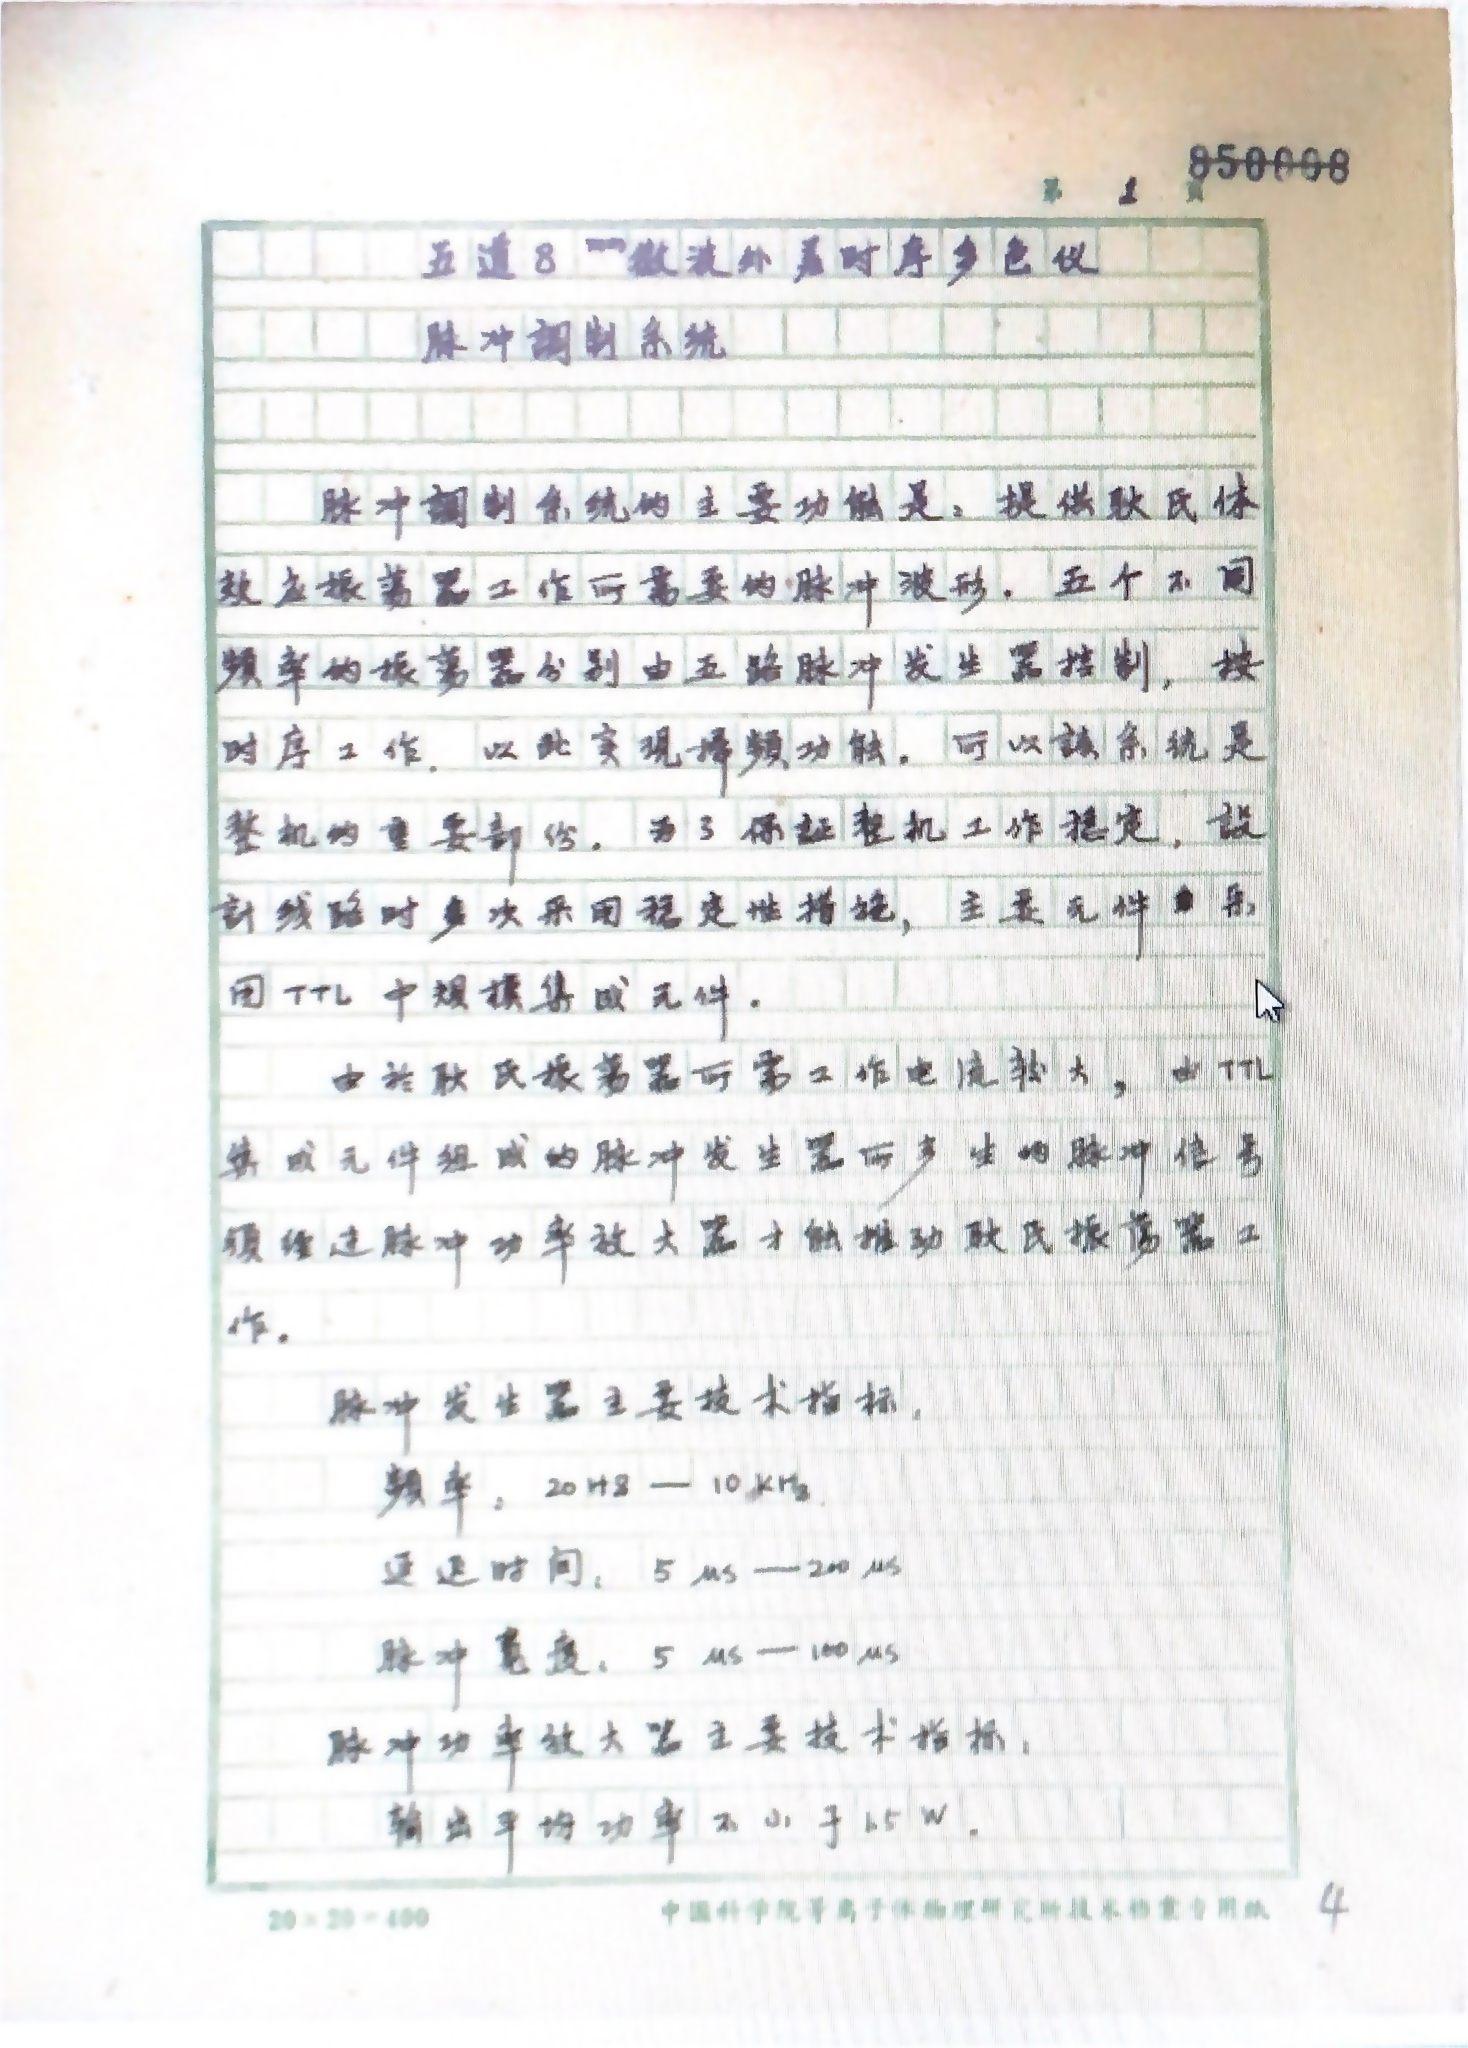 850008
第 1 页
五道8mm微波外差时序多色仪
脉冲調制系统
脉冲調制系统的主要功能是：提供耿氏体
效应振荡器工作所需要的脉冲波形．五个不同
頻率的振荡器分别由五路脉冲发生器控制，按
时序工作．以此实现掃頻功能．可以該系统是
整机的重要部份．为了保証整机工作穩定，設
計线路时多次采用穩定性措施，主要元件采
用TTL中規模集成元件．
由於耿氏振荡器所需工作电流較大，由TTL
集成元件組成的脉冲发生器所产生的脉冲信号
須经过脉冲功率放大器才能推动耿氏振荡器工
作．
脉冲发生器主要技术指标．
頻率：20Hz — 10KHz
延迟时间：5 μs — 200 μs
脉冲宽度：5 μs — 100 μs
脉冲功率放大器主要技术指标．
輸出平均功率不小于1.5W．
20×20=400
中国科学院等离子体物理研究所技术档案专用纸
4